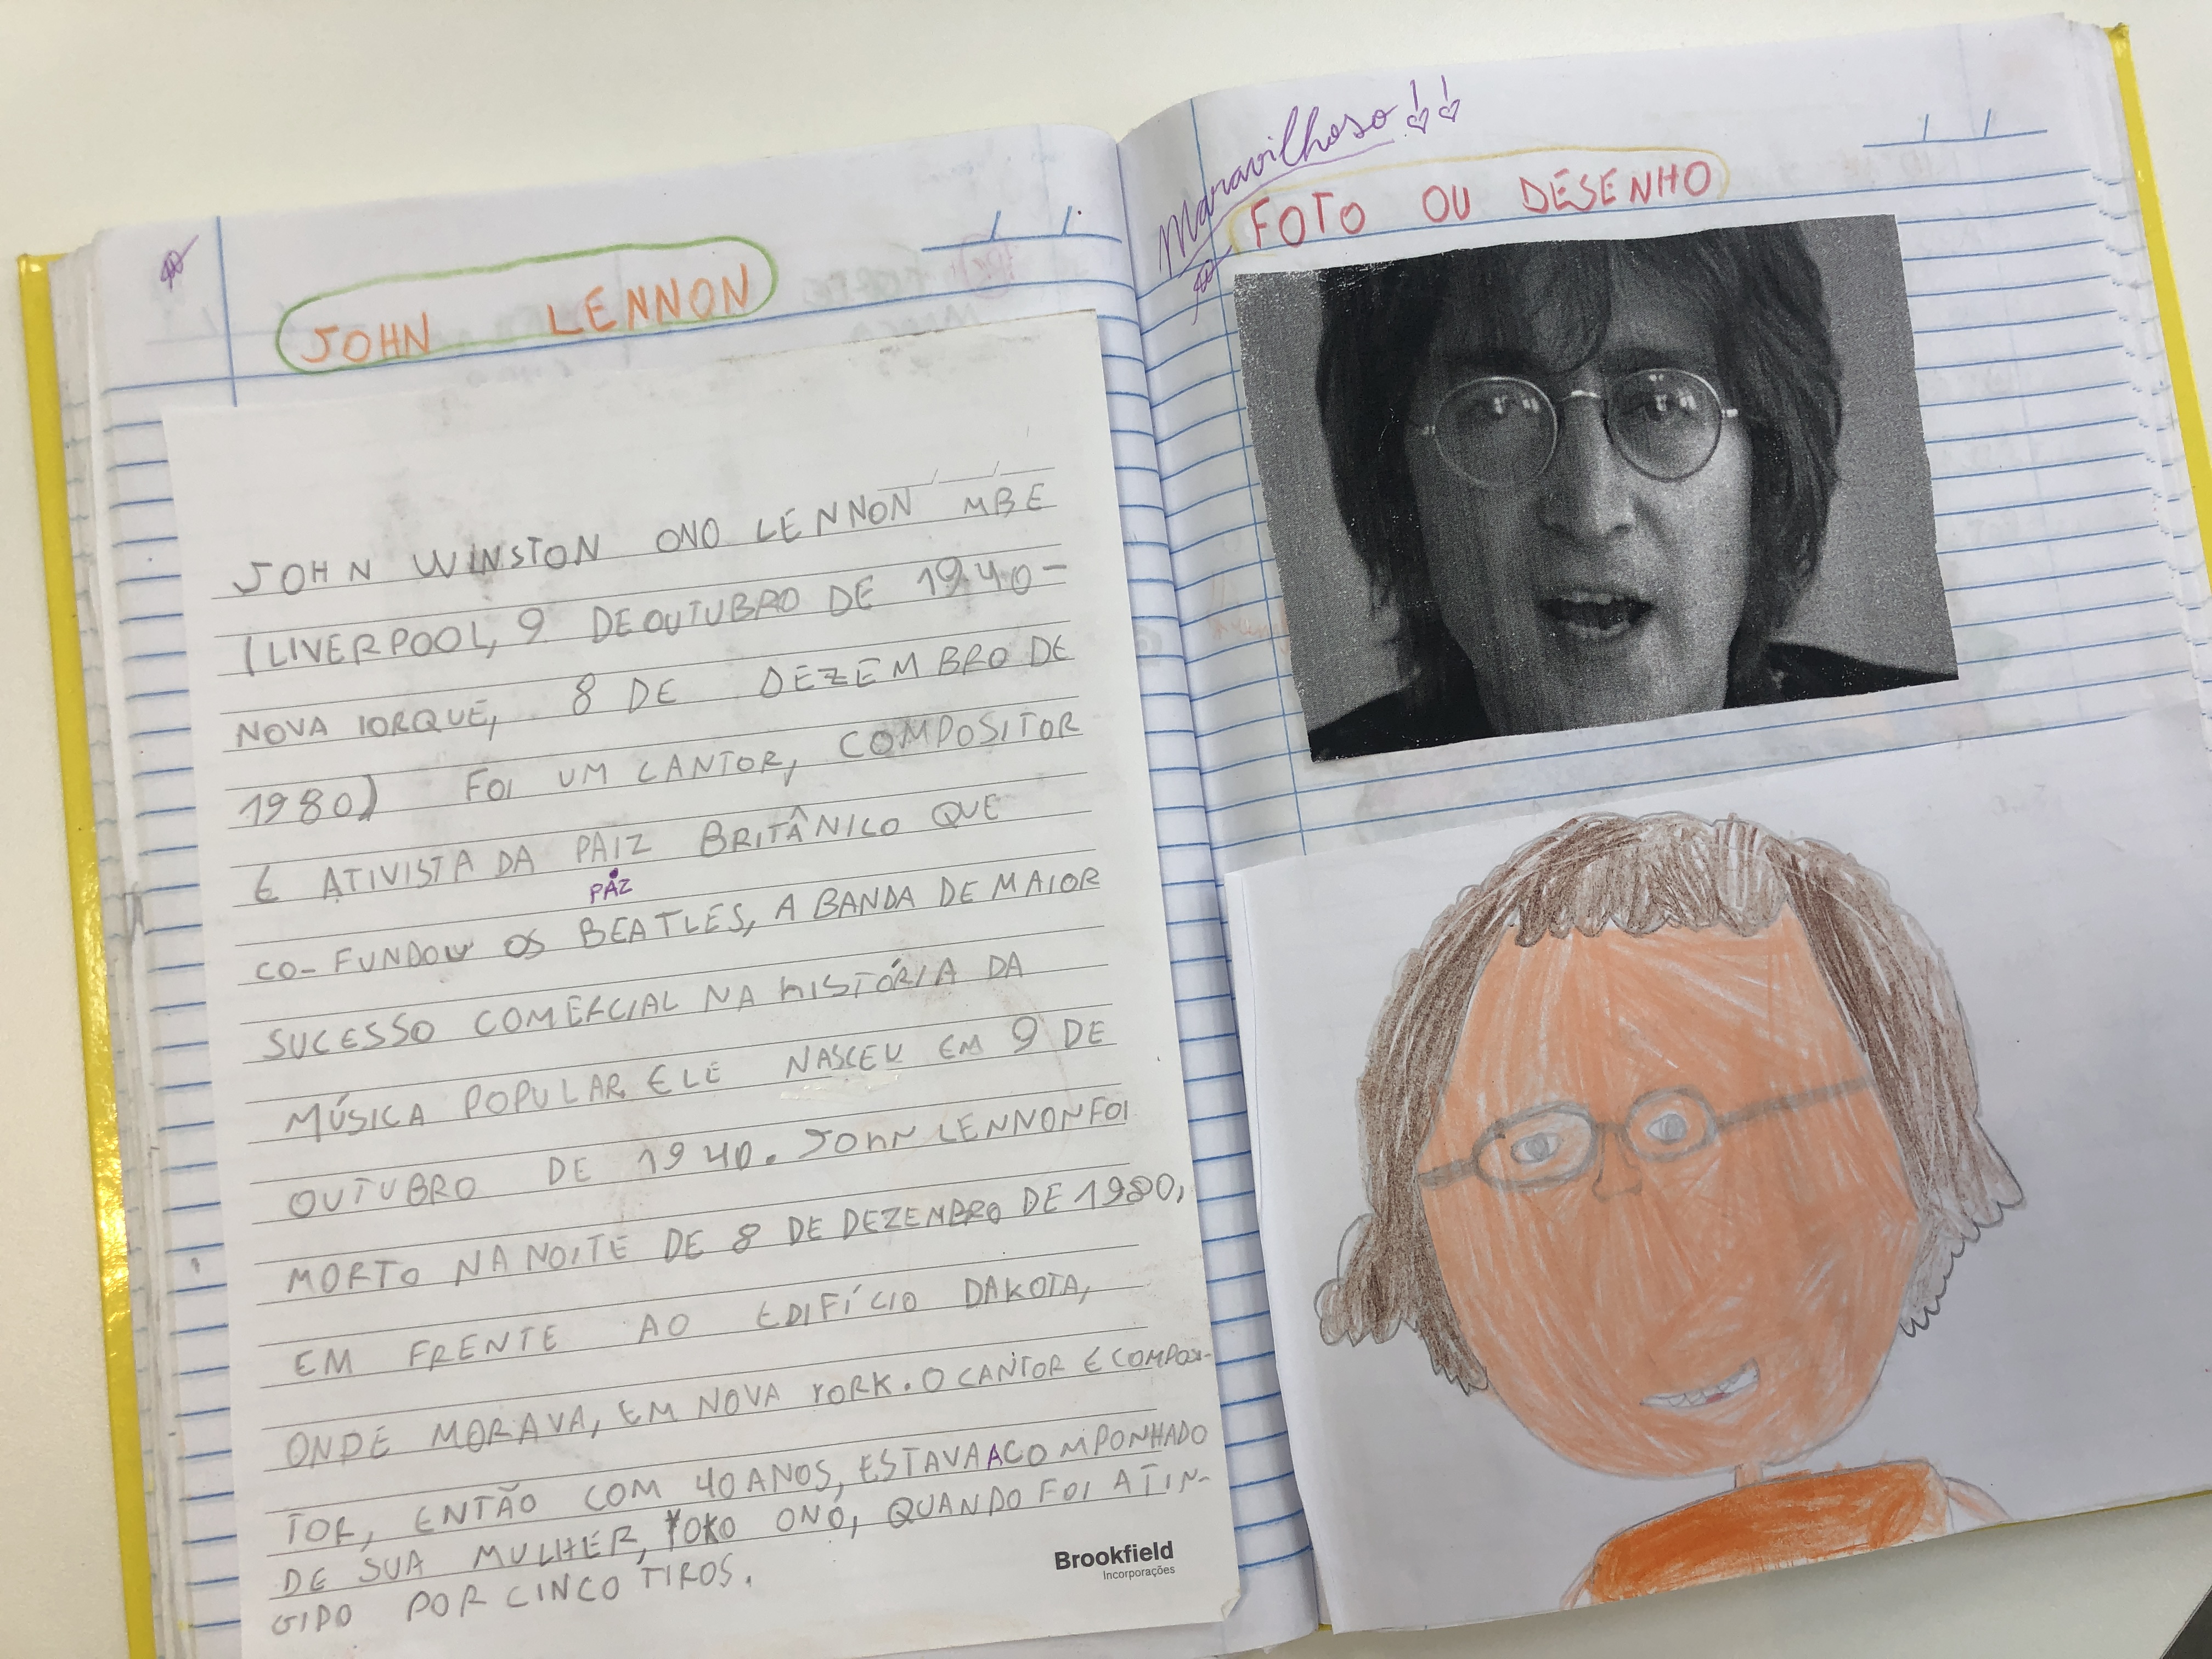 JOHN LENNON
JOHN WINSTON ONO LENNON MBE
(LIVERPOOL, 9 DE OUTUBRO DE 1940 -
NOVA IORQUE, 8 DE DEZEMBRO DE
1980) FOI UM CANTOR, COMPOSITOR
E ATIVISTA DA PAIZ BRITÂNICO QUE
PAZ
CO-FUNDOU OS BEATLES, A BANDA DE MAIOR
SUCESSO COMERCIAL NA hISTÓRIA DA
MÚSICA POPULAR. ELE NASCEU EM 9 DE
OUTUBRO DE 1940. JOhN LENNON FOI
MORTO NA NOITE DE 8 DE DEZEMBRO DE 1980,
EM FRENTE AO EDIFÍCIO DAKOTA,
ONDE MORAVA, EM NOVA YORK. O CANTOR E COMPOSI-
TOR, ENTÃO COM 40 ANOS, ESTAVA ACOMPONHADO
DE SUA MULHER, YOKO ONO, QUANDO FOI ATIN-
GIDO POR CINCO TIROS.
Brookfield
Incorporações
Maravilhoso!!
FOTO OU DESENHO